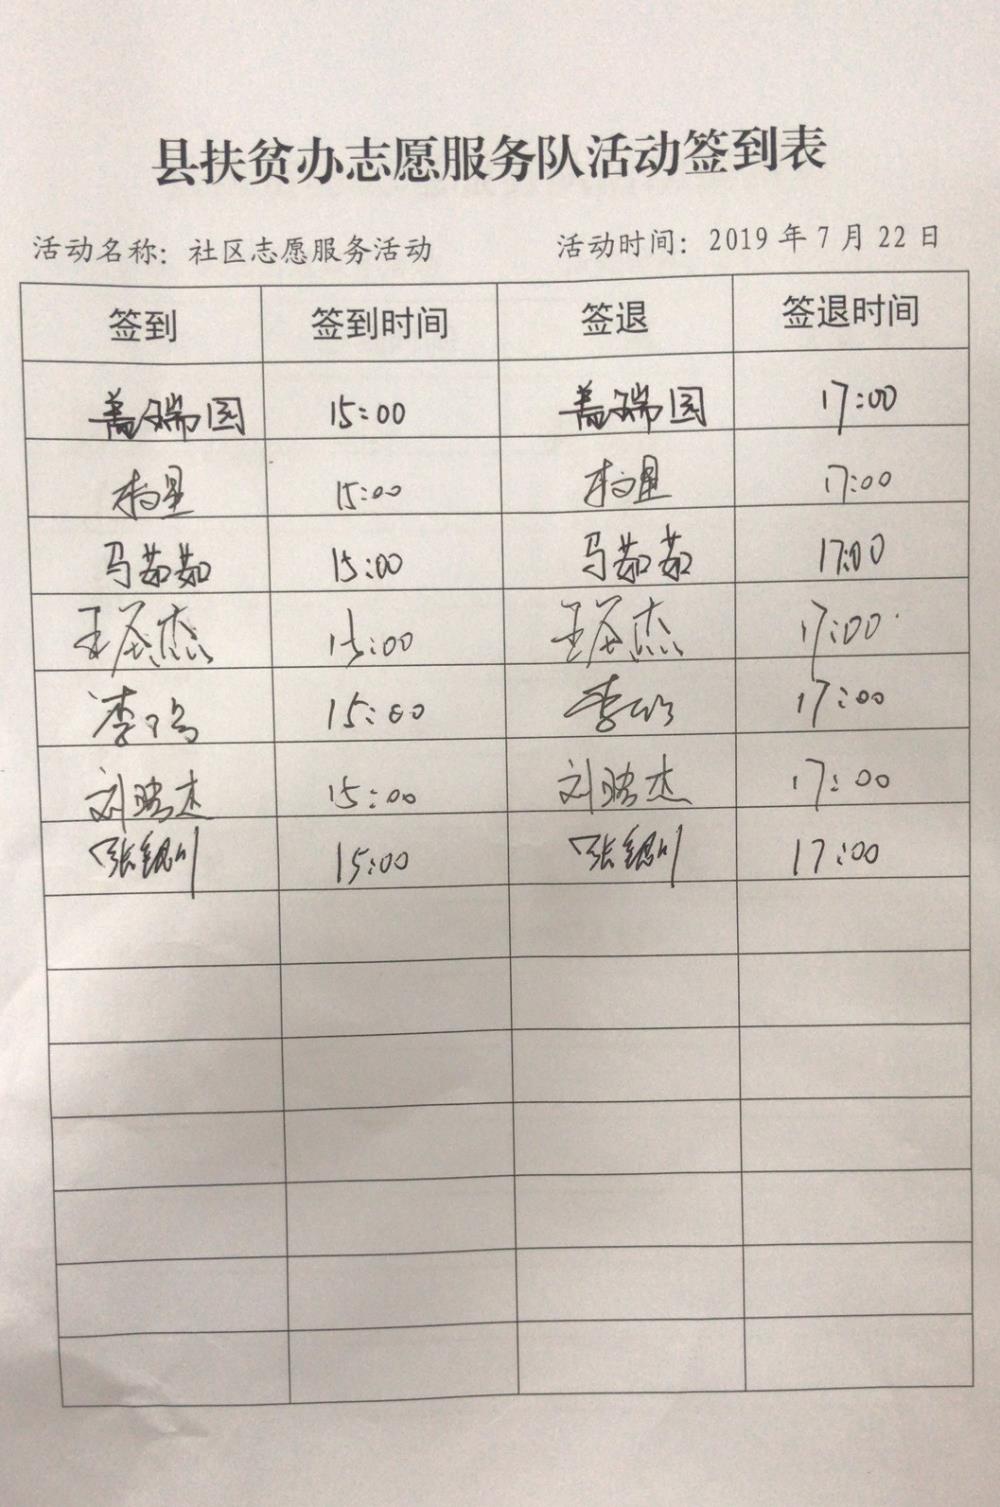 县扶贫办志愿服务队活动签到表
活动名称：社区志愿服务活动 活动时间：2019 年 7 月 22 日
签到 签到时间 签退 签退时间
盖瑞国 15:00 盖瑞国 17:00
15:00 17:00
马茹茹 15:00 马茹茹 17:00
王 杰 15:00 王 杰 17:00
李 15:00 李 17:00
刘晓杰 15:00 刘晓杰 17:00
张 川 15:00 张 川 17:00